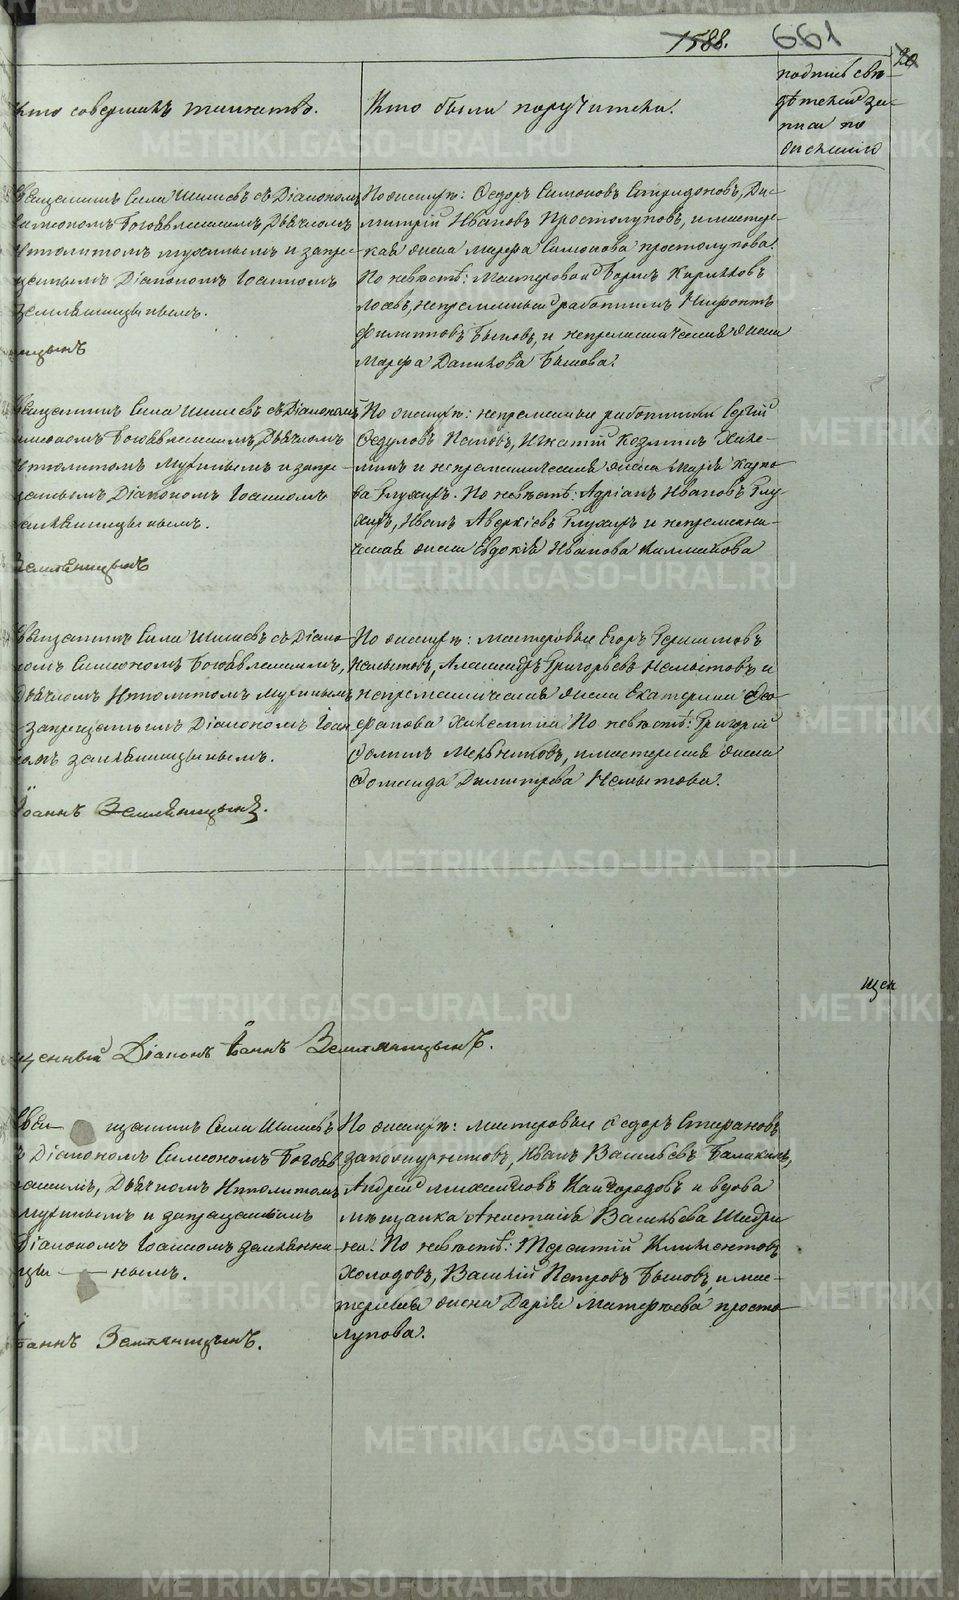 1588. 661
20
Кто совершалъ таинство.
Кто были поручители.
подпись сви-
дѣтелей за-
писи по
желанію
Священникъ Сила Шишевъ съ Діакономъ
Симеономъ Богоявленскимъ, Дьячкомъ
Ипполитомъ Мухинымъ и запре-
щеннымъ Діакономъ Іоанномъ
Земляницынымъ.
ницынъ
По женихѣ: Ѳедоръ Симоновъ Спиридоновъ, Ди-
митрій Ивановъ Простолуповъ, и мастер-
ская жена Марфа Симонова Простолупова.
По невѣстѣ: мастеровой Борисъ Кириловъ
непремѣнный работникъ Нифонтъ
Филиповъ Бызовъ, и непремѣнническая жена
Марфа Данилова Бызова.
Священникъ Сила Шишевъ съ Діакономъ
Симеономъ Богоявленскимъ, Дьячкомъ
Ипполитомъ Мухинымъ и запре-
щеннымъ Діакономъ Іоанномъ
Земляницынымъ.
Земляницынъ
По женихѣ: непремѣнные работники Сергій
Ѳедуловъ Поповъ, Игнатій Козминъ
и непремѣнническая жена Марія Карпо-
ва Глухихъ. По невѣстѣ: Адріанъ Ивановъ Глу-
хихъ, Иванъ Аверкіевъ Глухихъ и непремѣнни-
ческая жена Евдокія Иванова
Священникъ Сила Шишевъ съ Діако-
номъ Симеономъ Богоявленскимъ,
Дьячкомъ Ипполитомъ Мухинымъ
запрещеннымъ Діакономъ Іоан-
номъ Земляницынымъ.
Іоаннъ Земляницынъ.
По женихѣ: мастеровые Егоръ Герасимовъ
Немытовъ, Александръ Григорьевъ Немытовъ и
непремѣнническая жена Екатерина Ѳео-
фанова По невѣстѣ: Григорій
Ѳоминъ и мастерская жена
Домнида Димитрева Немытова.
щен
щенный Діаконъ Іоаннъ Земляницынъ.
Свя- щенникъ Сила Шишевъ
съ Діакономъ Симеономъ Богояв-
ленскимъ, Дьячкомъ Ипполитомъ
Мухинымъ и запрещеннымъ
Діакономъ Іоанномъ Землянни-
цы- нымъ.
Іоаннъ Земляницынъ.
По женихѣ: мастеровые Ѳедоръ Стефановъ
Иванъ Васильевъ Балакинъ,
Андрей Михайловъ Кайгородовъ и вдова
мѣщанка Анастасія Васильева Шидри-
на. По невѣстѣ: Терентій Климентовъ
Холодовъ, Василій Петровъ Бызовъ, и мас-
терская жена Дарія Матфеева Просто-
лупова.